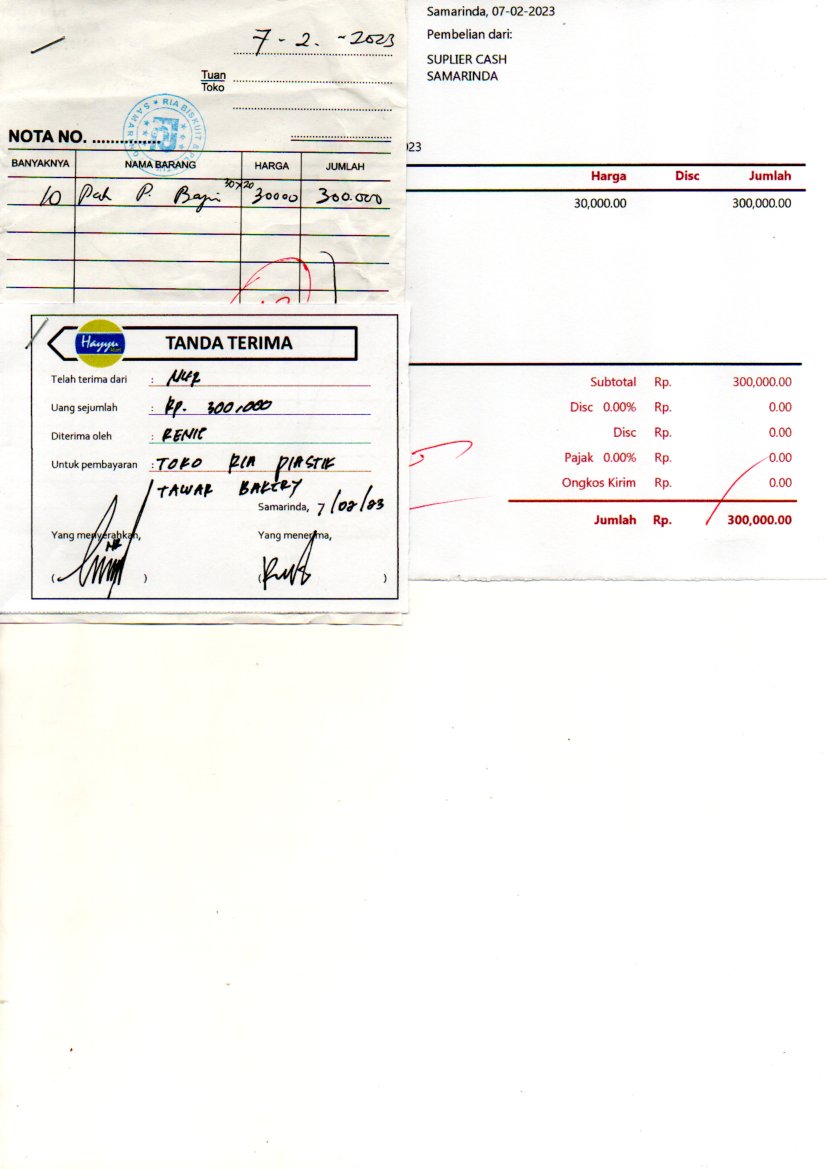 7-2.-2023
Tuan
Toko
RIA BISKUIT &
SAMAR
NOTA NO.
BANYAKNYA NAMA BARANG HARGA JUMLAH
10 Pak P. 30x20 30000 300.000
Hayyu
TANDA TERIMA
Telah terima dari : NUR
Uang sejumlah : Rp. 300.000
Diterima oleh : RENIE
Untuk pembayaran : TOKO RIA PLASTIK
TAWAR BAKERY
Samarinda, 7/02/23
Yang menyerahkan, Yang menerima,
( ) ( )
Samarinda, 07-02-2023
Pembelian dari:
SUPLIER CASH
SAMARINDA
023
Harga Disc Jumlah
30,000.00 300,000.00
Subtotal Rp. 300,000.00
Disc 0.00% Rp. 0.00
Disc Rp. 0.00
Pajak 0.00% Rp. 0.00
Ongkos Kirim Rp. 0.00
Jumlah Rp. 300,000.00